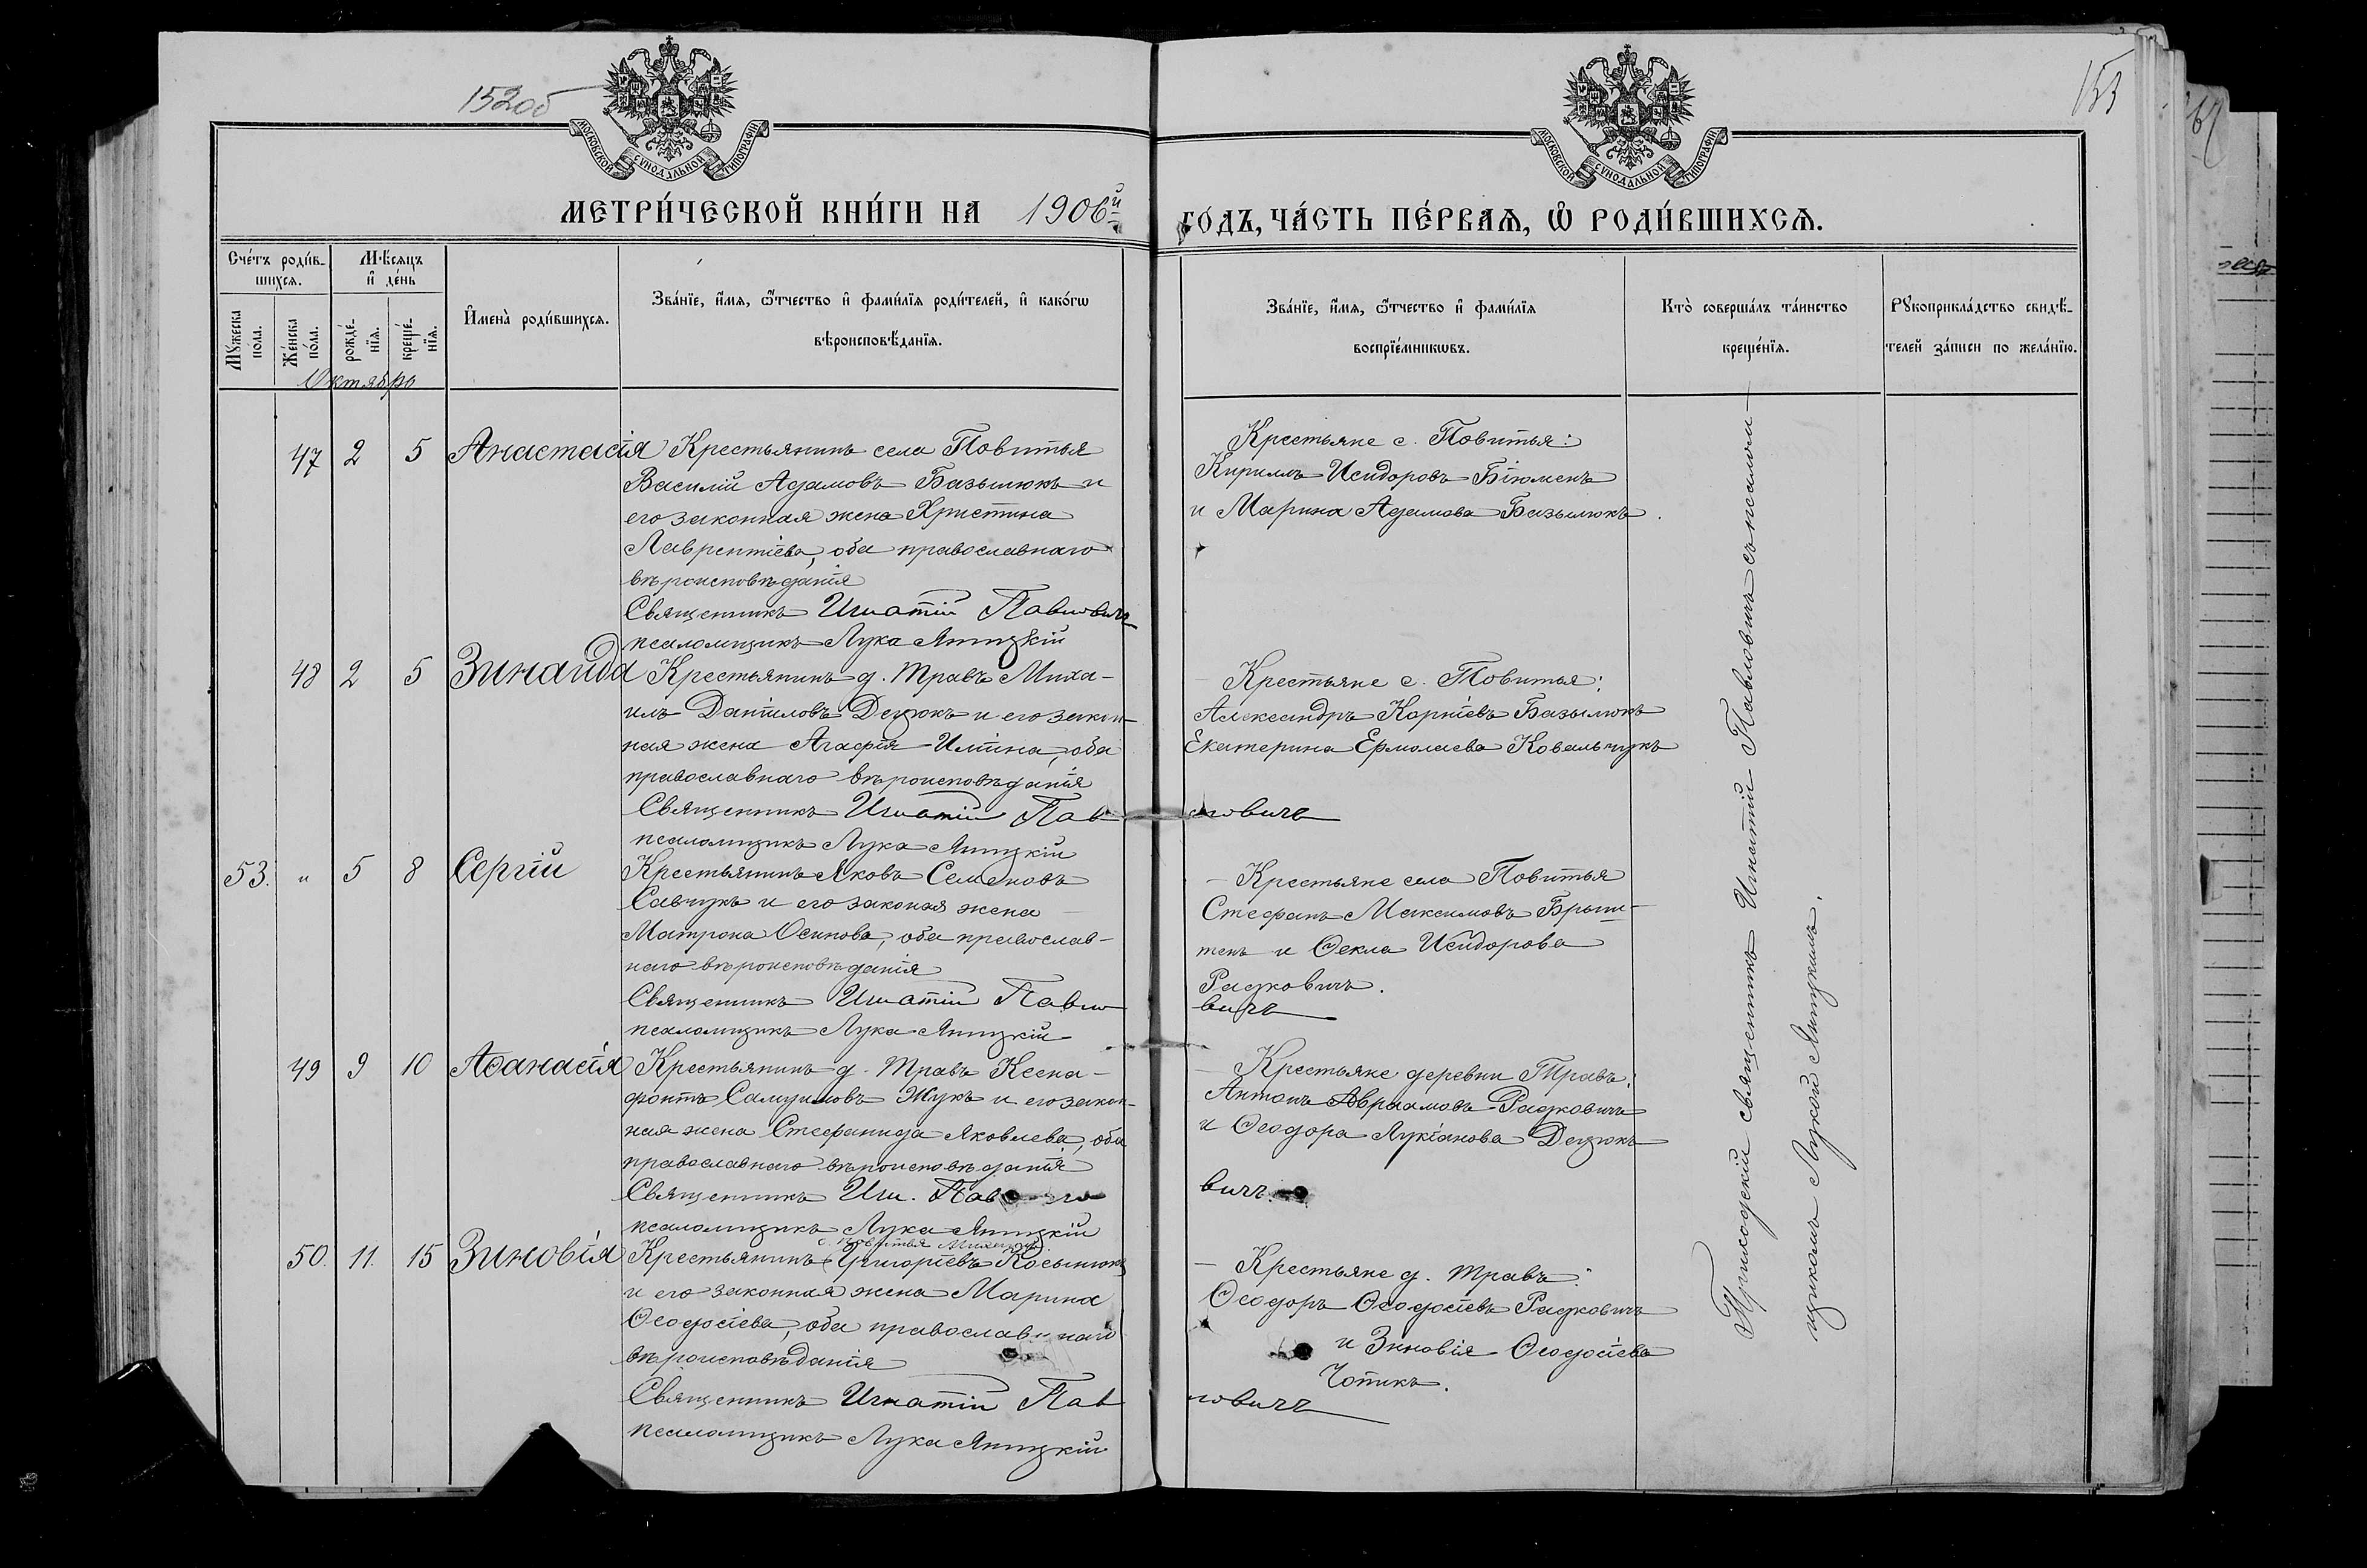 152об
153
МОСКОВСКОЙ СѴНОДАЛЬНОЙ ТИПОГРАФІИ
МОСКОВСКОЙ СѴНОДАЛЬНОЙ ТИПОГРАФІИ
МЕТРИ́ЧЕСКОЙ КНИ́ГИ НА 1906й
ГО́ДЪ, ЧА́СТЬ ПЕ́РВАѦ, Ѽ РОДИ́ВШИХСѦ.
Сче́тъ роди́в-
шихсѧ.
Мꙋ́жеска
по́ла.
Же́нска
по́ла.
Мѣ́сѧцъ
и҆ де́нь
рожде́-
нїѧ.
креще́-
нїѧ.
И҆мена̀ роди́вшихсѧ.
Зва́нїе, и҆́мѧ, ѻ҆́тчество и҆ фами́лїѧ роди́телей, и҆ како́гѡ
вѣроисповѣ́данїѧ.
Зва́нїе, и҆́мѧ, ѻ҆́тчество и҆ фами́лїѧ
воспрїе́мникѡвъ.
Кто̀ соверша́лъ та́инство
креще́нїѧ.
Рꙋкоприкла́дство свидѣ́-
телей за́писи по жела́нїю.
Октябрь
47 2 5 Анастасія Крестьянинъ села Повитья
Василій Адамовъ Базылюкъ и
его законная жена Христина
Лаврентіева, оба православнаго
вѣроисповѣданія
Священникъ Игнатій Павловичъ
псаломщикъ Лука Ящицкій
Крестьяне с. Повитья:
Кириллъ Исидоровъ Бѣгюменъ
и Марина Адамова Базылюкъ.
48 2 5 Зинаида Крестьянинъ д. Травъ Миха-
илъ Даніиловъ Децюкъ и его закон-
ная жена Агафія Иліина, оба
православнаго вѣроисповѣданія
Священникъ Игнатій Павловичъ
псаломщикъ Лука Ящицкій
Крестьяне с. Повитья:
Александръ Корніевъ Базылюкъ
Екатерина Ермолаева Ковальчукъ
53. " 5 8 Сергій Крестьянинъ Яковъ Семеновъ
Савчукъ и его законая жена
Матрона Осипова, оба православ-
наго вѣроисповѣданія
Священникъ Игнатій Павловичъ
псаломщикъ Лука Ящицкій
Крестьяне села Повитья
Стефанъ Максимовъ Брыш-
тенъ и Ѳекла Исидорова
Радковичъ.
49 9 10 Аѳанасія Крестьянинъ д. Травъ Ксено-
фонтъ Самуиловъ Жукъ и его закон-
ная жена Стефанида Яковлева, оба
православнаго вѣроисповѣданія
Священникъ Игн. Павловичъ
псаломщикъ Лука Ящицкій
Крестьяне деревни Травъ:
Антонъ Авраамовъ Радковичъ
и Ѳеодора Лукіанова Децюкъ
50. 11. 15 Зиновія Крестьянинъ с. Повитья Григоріевъ Косынюкъ
и его законная жена Марина
Ѳеодосіева, оба православнаго
вѣроисповѣданія
Священникъ Игнатій Павловичъ
псаломщикъ Лука Ящицкій
Крестьяне д. Травъ:
Ѳеодоръ Ѳеодосіевъ Радковичъ
и Зиновія Ѳеодосіева
Чотикъ.
Приходскій священникъ Игнатій Павловичъ съ псалом-
щикомъ Лукой Ящицкимъ.